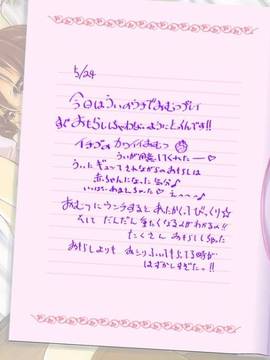 5/24
今日はういのウチでおむつプレイ
おもらししちゃわないように と んです!!
イチゴの カワイイおむつ
ういが用意してくれたー♡
ういに ギュッてされながらのおもらしは
赤ちゃんになった気分♪
いっぱい しちゃった♡ えっへへ♪
おむつにウンチすると あたたかくてびっくり☆
そして だんだん 重たくなるのがわかるの!!
たくさん おもらししちゃった
おもらしよりも おしりふいてもらってる時が
はずかしすぎたっ!!